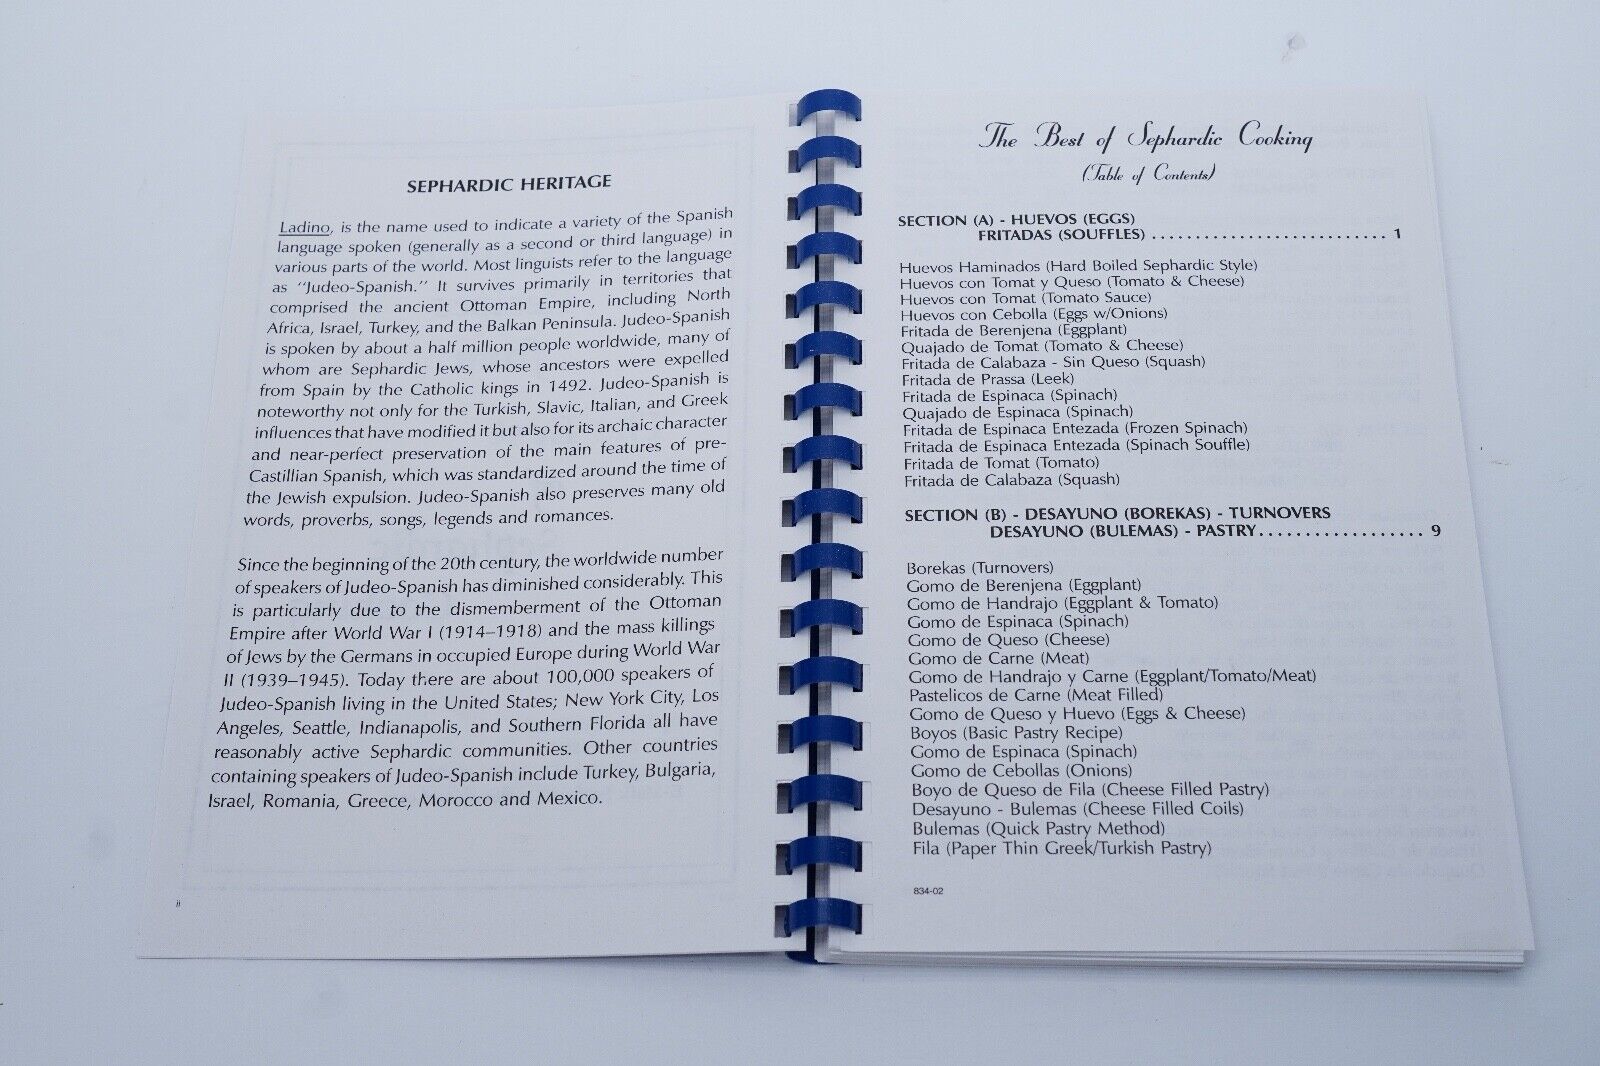 SEPHARDIC HERITAGE
Ladino, is the name used to indicate a variety of the Spanish
language spoken (generally as a second or third language) in
various parts of the world. Most linguists refer to the language
as "Judeo-Spanish." It survives primarily in territories that
comprised the ancient Ottoman Empire, including North
Africa, Israel, Turkey, and the Balkan Peninsula. Judeo-Spanish
is spoken by about a half million people worldwide, many of
whom are Sephardic Jews, whose ancestors were expelled
from Spain by the Catholic kings in 1492. Judeo-Spanish is
noteworthy not only for the Turkish, Slavic, Italian, and Greek
influences that have modified it but also for its archaic character
and near-perfect preservation of the main features of pre-
Castillian Spanish, which was standardized around the time of
the Jewish expulsion. Judeo-Spanish also preserves many old
words, proverbs, songs, legends and romances.
Since the beginning of the 20th century, the worldwide number
of speakers of Judeo-Spanish has diminished considerably. This
is particularly due to the dismemberment of the Ottoman
Empire after World War I (1914–1918) and the mass killings
of Jews by the Germans in occupied Europe during World War
II (1939–1945). Today there are about 100,000 speakers of
Judeo-Spanish living in the United States; New York City, Los
Angeles, Seattle, Indianapolis, and Southern Florida all have
reasonably active Sephardic communities. Other countries
containing speakers of Judeo-Spanish include Turkey, Bulgaria,
Israel, Romania, Greece, Morocco and Mexico.
ii
The Best of Sephardic Cooking
(Table of Contents)
SECTION (A) - HUEVOS (EGGS)
FRITADAS (SOUFFLES) . . . . . . . . . . . . . . . . . . . . . . . . . . . 1
Huevos Haminados (Hard Boiled Sephardic Style)
Huevos con Tomat y Queso (Tomato & Cheese)
Huevos con Tomat (Tomato Sauce)
Huevos con Cebolla (Eggs w/Onions)
Fritada de Berenjena (Eggplant)
Quajado de Tomat (Tomato & Cheese)
Fritada de Calabaza - Sin Queso (Squash)
Fritada de Prassa (Leek)
Fritada de Espinaca (Spinach)
Quajado de Espinaca (Spinach)
Fritada de Espinaca Entezada (Frozen Spinach)
Fritada de Espinaca Entezada (Spinach Souffle)
Fritada de Tomat (Tomato)
Fritada de Calabaza (Squash)
SECTION (B) - DESAYUNO (BOREKAS) - TURNOVERS
DESAYUNO (BULEMAS) - PASTRY . . . . . . . . . . . . . . . . . . 9
Borekas (Turnovers)
Gomo de Berenjena (Eggplant)
Gomo de Handrajo (Eggplant & Tomato)
Gomo de Espinaca (Spinach)
Gomo de Queso (Cheese)
Gomo de Carne (Meat)
Gomo de Handrajo y Carne (Eggplant/Tomato/Meat)
Pastelicos de Carne (Meat Filled)
Gomo de Queso y Huevo (Eggs & Cheese)
Boyos (Basic Pastry Recipe)
Gomo de Espinaca (Spinach)
Gomo de Cebollas (Onions)
Boyo de Queso de Fila (Cheese Filled Pastry)
Desayuno - Bulemas (Cheese Filled Coils)
Bulemas (Quick Pastry Method)
Fila (Paper Thin Greek/Turkish Pastry)
834-02